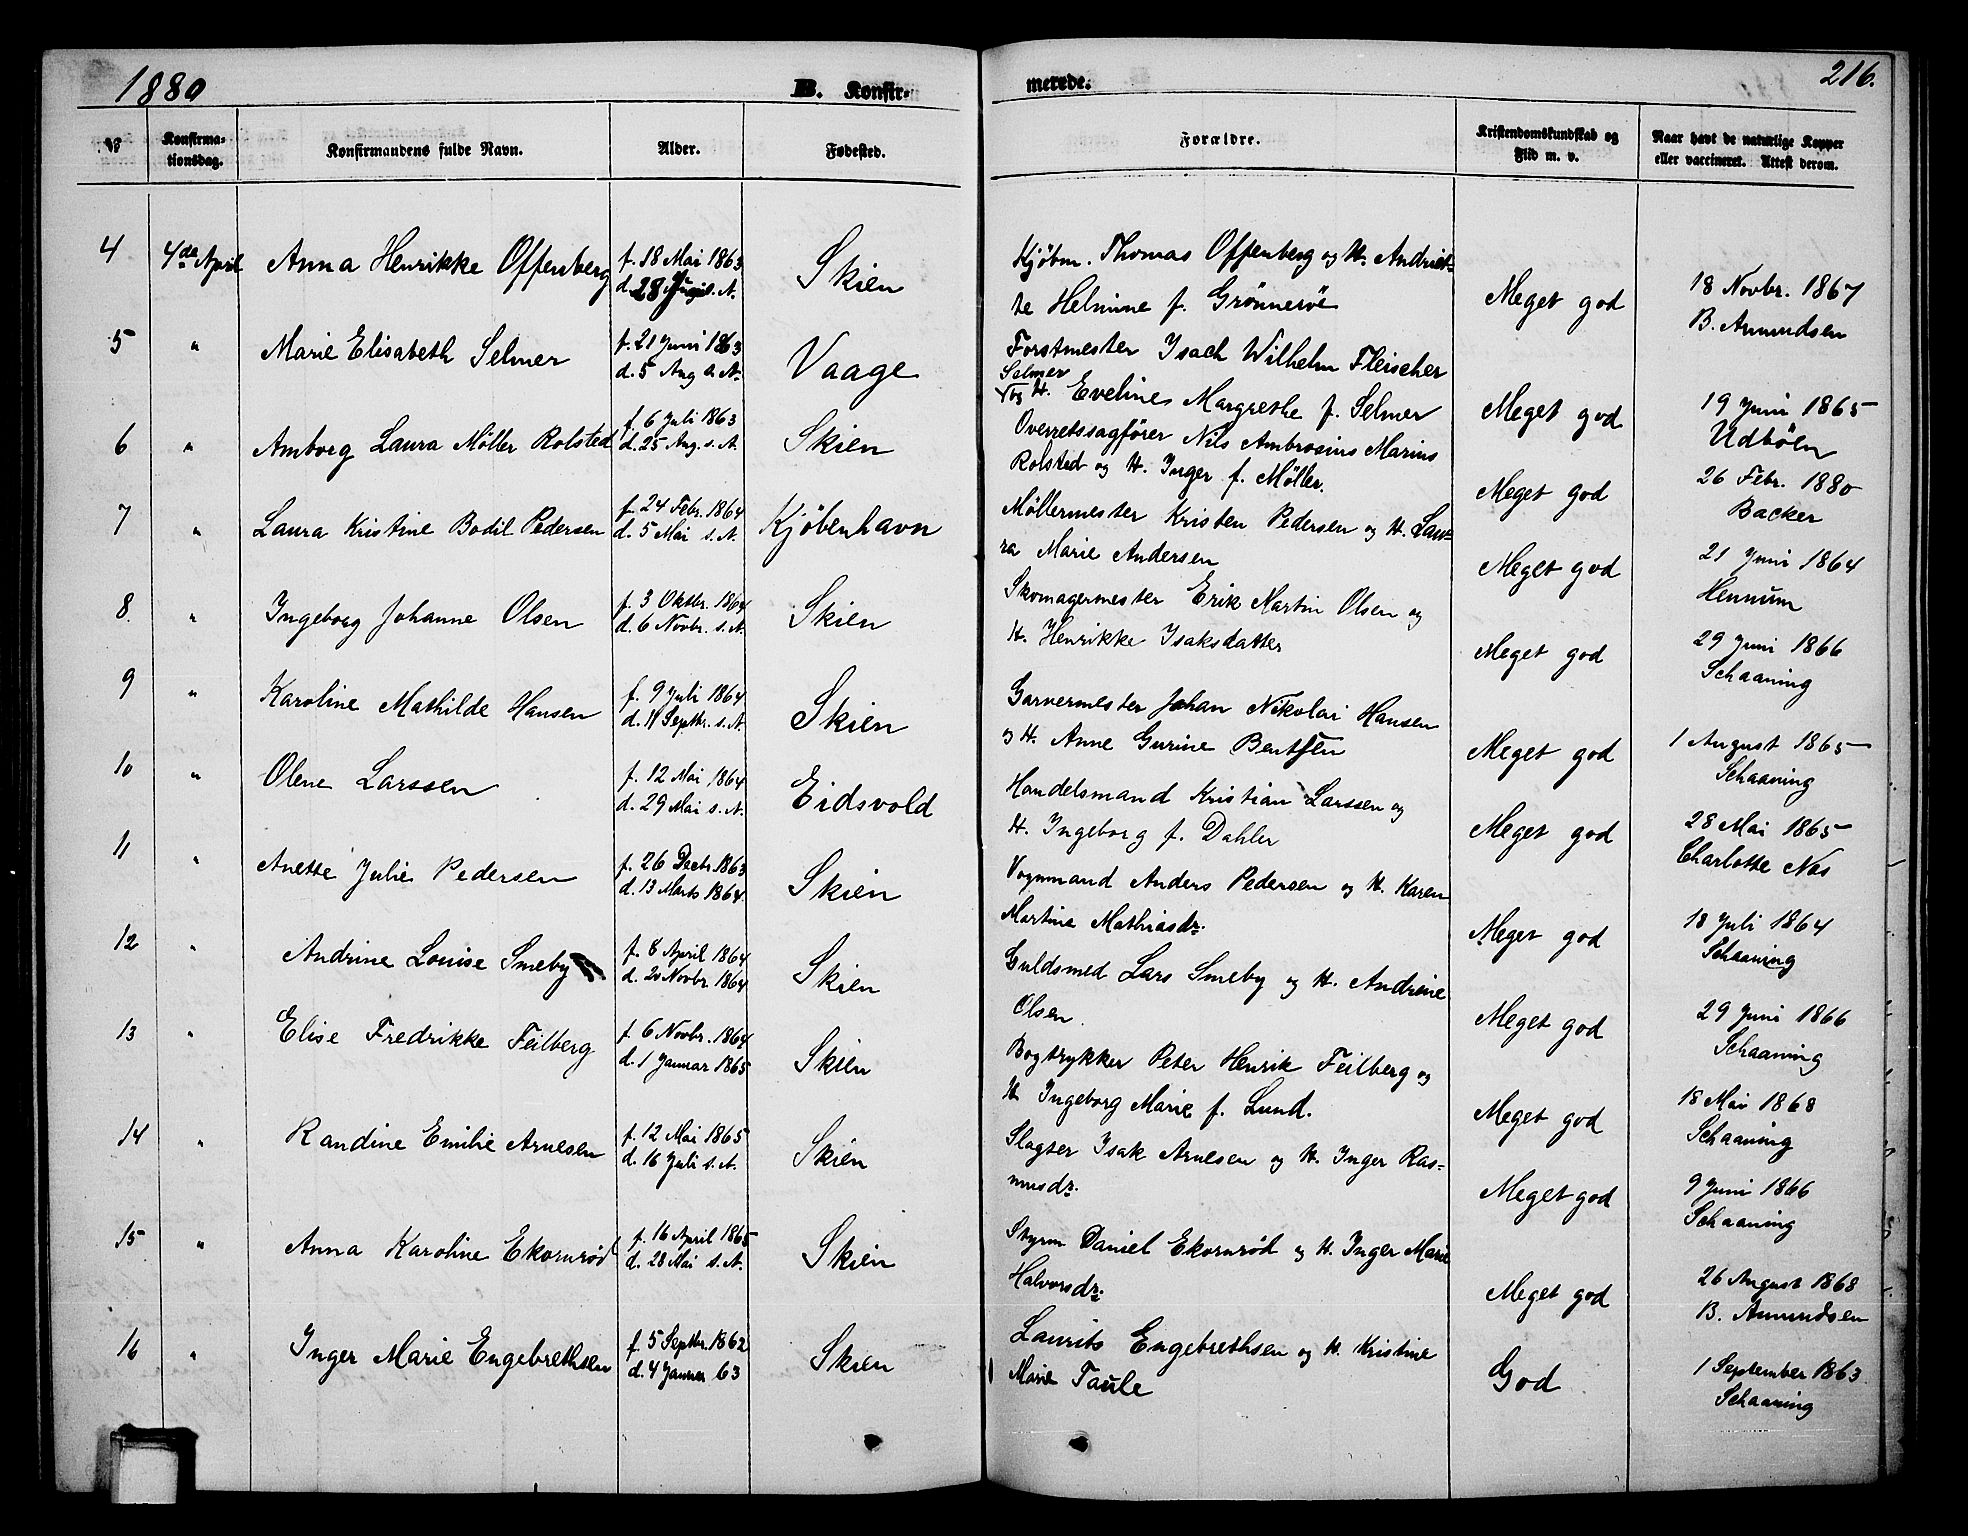 1880
B. Konfir-
merede.
216.
№
Konfirma-
tionsdag.
Konfirmandens fulde Navn.
Alder.
Fødested.
Forældre.
Kristendomskundskab og
Flid m. v.
Naar havt de naturlige Kopper
eller vaccineret. Attest derom.
4
4de April
Anna Henrikke Offenberg
f. 18 Mai 1863
d. 28 Juni s. A.
Skien
Kjöbm. Thomas Offenberg og H. Andriet-
te Helmine f. Grönneröe
Meget god
18 Novbr. 1867
B. Amundsen
5
"
Marie Elisabeth Selmer
f. 21 Juni 1863
d. 5 Aug s. A.
Vaage
Forstmester Isach Wilhelm Fleischer
Selmer
og H. Eveline Margrethe f. Selmer
Meget god
19 Juni 1865
Udböln
6
"
Amborg Laura Möller Rolsted
f. 6 Juli 1863
d. 25 Aug. s. A.
Skien
Overretssagförer Nils Ambrosius Marius
Rolsted og H. Inger f. Möller.
Meget god
26 Febr. 1880
Backer
7
"
Laura Kristine Bodil Pedersen
f. 24 Febr. 1864
d. 5 Mai s. A.
Kjöbenhavn
Möllermester Kristen Pedersen og H. Lau-
ra Marie Andersen
Meget god
21 Juni 1864
Hennum
8.
"
Ingeborg Johanne Olsen
f. 3 Oktbr. 1864
d. 6 Novbr. s. A.
Skien
Skomagermester Erik Martin Olsen og
H. Henrikke Isaksdatter
Meget god
29 Juni 1866
Schaaning
9
"
Karoline Mathilde Hansen
f. 9 Juli 1864
d. 11 Septbr. s. A.
Skien
Garvermester Johan Nikolai Hansen
og H. Anne Gurine Bentsen
Meget god
1 August 1865
Schaaning
10
"
Olene Larssen
f. 12 Mai 1864
d. 29 Mai s. A.
Eidsvold
Handelsmand Kristian Larssen og
H. Ingeborg f. Dahler
Meget god
28 Mai 1865
Charlotte Næs
11
"
Anette Julie Pedersen
f. 26 Decbr. 1863
d. 13 Marts 1864.
Skien
Vognmand Anders Pedersen og H. Karen
Martine Mathiasdr.
Meget god
18 Juli 1864
Schaaning
12
"
Andrine Louise Smeby
f. 8 April 1864
d. 20 Novbr. 1864
Skien
Guldsmed Lars Smeby og H. Andrine
Olsen.
Meget god
29 Juni 1866
Schaaning
13
"
Elise Fredrikke Feilberg
f. 6 Novbr. 1864
d. 1 Januar 1865
Skien
Bogtrykker Peter Henrik Feilberg og
H Ingeborg Marie f. Lund.
Meget god
18 Mai 1868
Schaaning
14
"
Randine Emilie Arnesen
f. 12 Mai 1865
d. 16 Juli s. A.
Skien
Slagter Isak Arnesen og H. Inger Ras-
musdr.
Meget god
9 Juni 1866
Schaaning
15
"
Anna Karoline Ekornröd
f. 16 April 1865
d. 28 Mai s. A.
Skien
Styrm Daniel Ekornröd og H. Inger Marie
Halvorsdr.
Meget god
26 August 1868
B. Amundsen
16
"
Inger Marie Engebrethsen
f. 5 Septbr. 1862
d. 4 Januar 63
Skien
Laurits Engebrethsen og H. Kristine
Marie Taule
God
1 September 1863
Schaaning